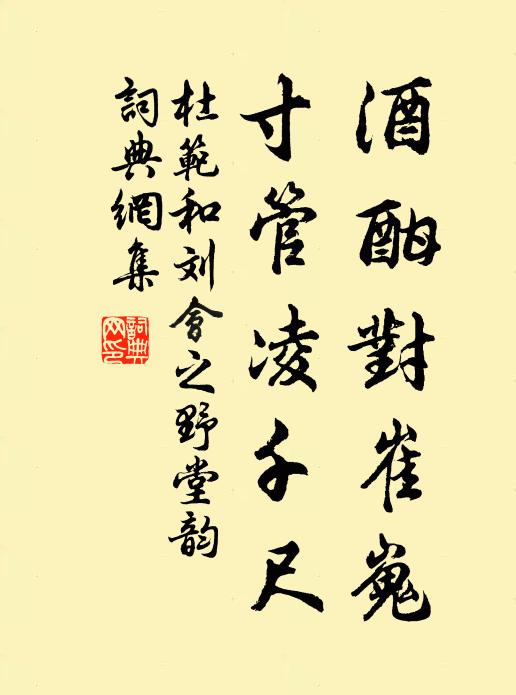 酒酣對崔嵬
寸管凌千尺
杜範和刘會之野堂韵
詞典網集
詞典網印